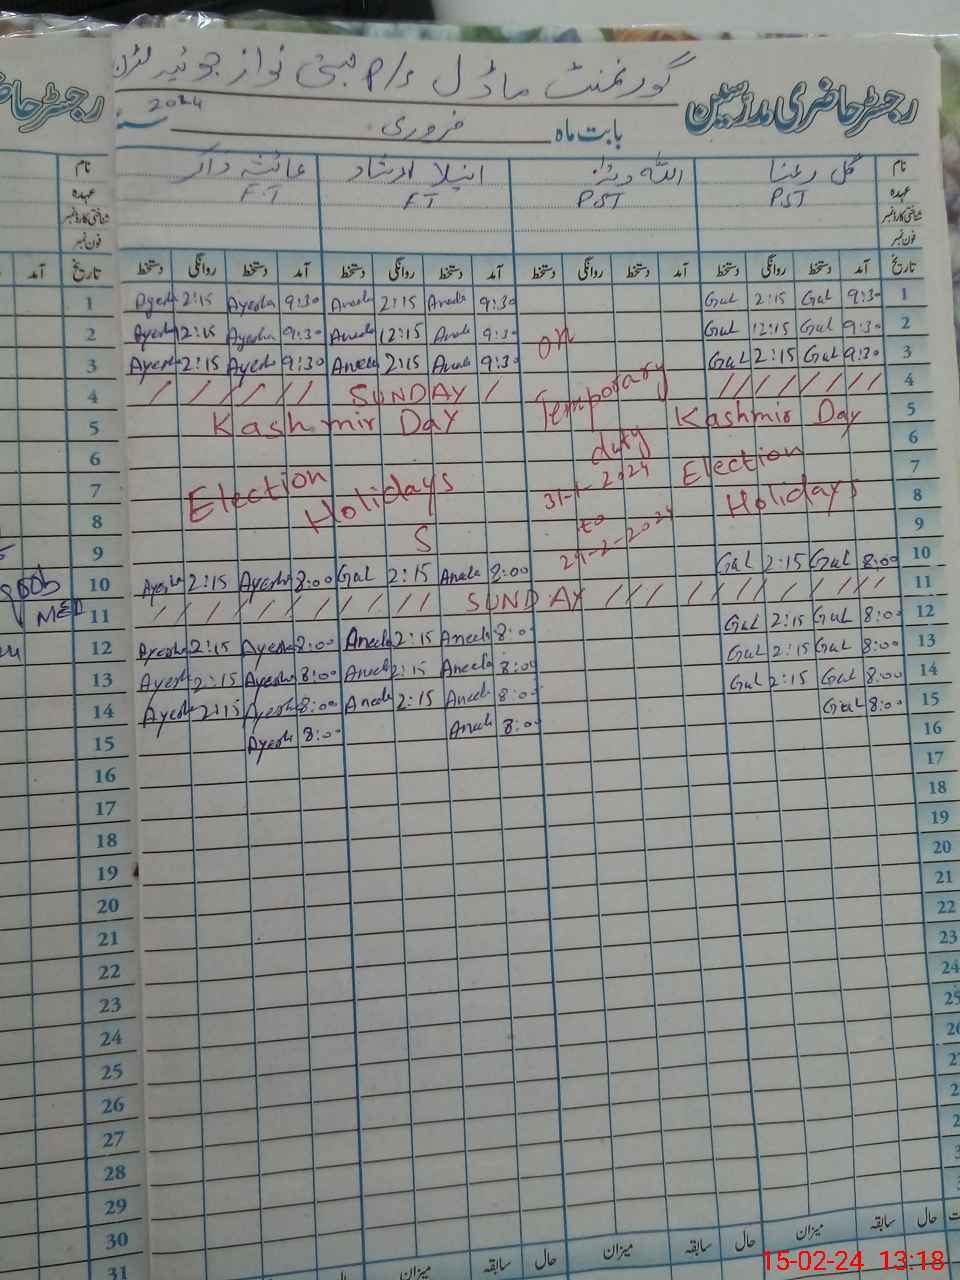 رجسٹر حاضری مدرسین
گورنمنٹ ماڈل P/s بستی نواز
بابت ماہ فروری 2024
نام گل رعنا اللہ دتہ انیلا ارشاد عائشہ ذاکر
عہدہ PST PST FT F.T
شناختی کارڈ نمبر
فون نمبر
تاریخ آمد دستخط روانگی دستخط آمد دستخط روانگی دستخط آمد دستخط روانگی دستخط آمد دستخط روانگی دستخط تاریخ
1 9:30 Gul 2:15 Gul 9:30 Aneela 2:15 Aneela 9:30 Ayesha 2:15 Ayesha 1
2 9:30 Gul 12:15 Gul 9:30 Aneela 12:15 Aneela 9:30 Ayesha 12:15 Ayesha 2
3 9:30 Gul 2:15 Gul 9:30 Aneela 2:15 Aneela 9:30 Ayesha 2:15 Ayesha 3
on
Temporary
duty
31-1-2024
to
29-2-2024
4 SUNDAY 4
5 Kashmir Day Kashmir Day 5
6 6
7 Election Election 7
8 Holidays Holidays 8
9 S 9
10 8:00 Gul 2:15 Gul 8:00 Aneela 2:15 Gul 8:00 Ayesha 2:15 Ayesha 10
11 SUNDAY 11
12 8:00 Gul 2:15 Gul 8:00 Aneela 2:15 Aneela 8:00 Ayesha 2:15 Ayesha 12
13 8:00 Gul 2:15 Gul 8:00 Aneela 2:15 Aneela 8:00 Ayesha 2:15 Ayesha 13
14 8:00 Gul 2:15 Gul 8:00 Aneela 2:15 Aneela 8:00 Ayesha 2:15 Ayesha 14
15 8:00 Gul 8:00 Aneela 8:00 Ayesha 15
16 16
17 17
18 18
19 19
20 20
21 21
22 22
23 23
24 24
25 25
26
27
28
29
30
31
حال سابقہ میزان حال سابقہ میزان حال سابقہ میزان حال
15-02-24 13:18